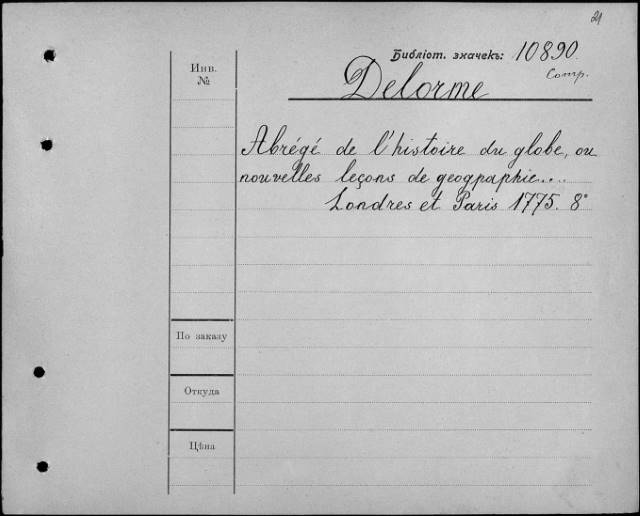 21
Библіот. значекъ: 10890
Comp.
Инв.
№
Delorme
Abrégé de l'histoire du globe, ou
nouvelles leçons de geogpaphie....
Londres et Paris 1775. 8°
По заказу
Откуда
Цѣна